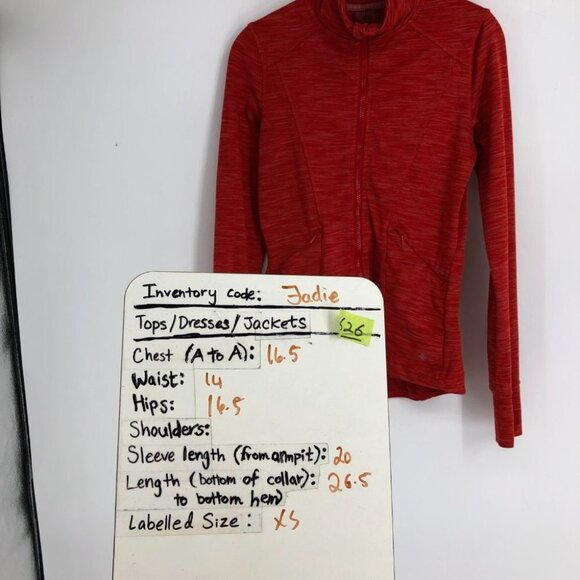 Inventory code: Jadie
Tops/Dresses/Jackets S26
Chest (A to A): 16.5
Waist: 14
Hips: 16.5
Shoulders:
Sleeve length (from armpit): 20
Length (bottom of collar) 26.5
to bottom hem)
Labelled Size: XS